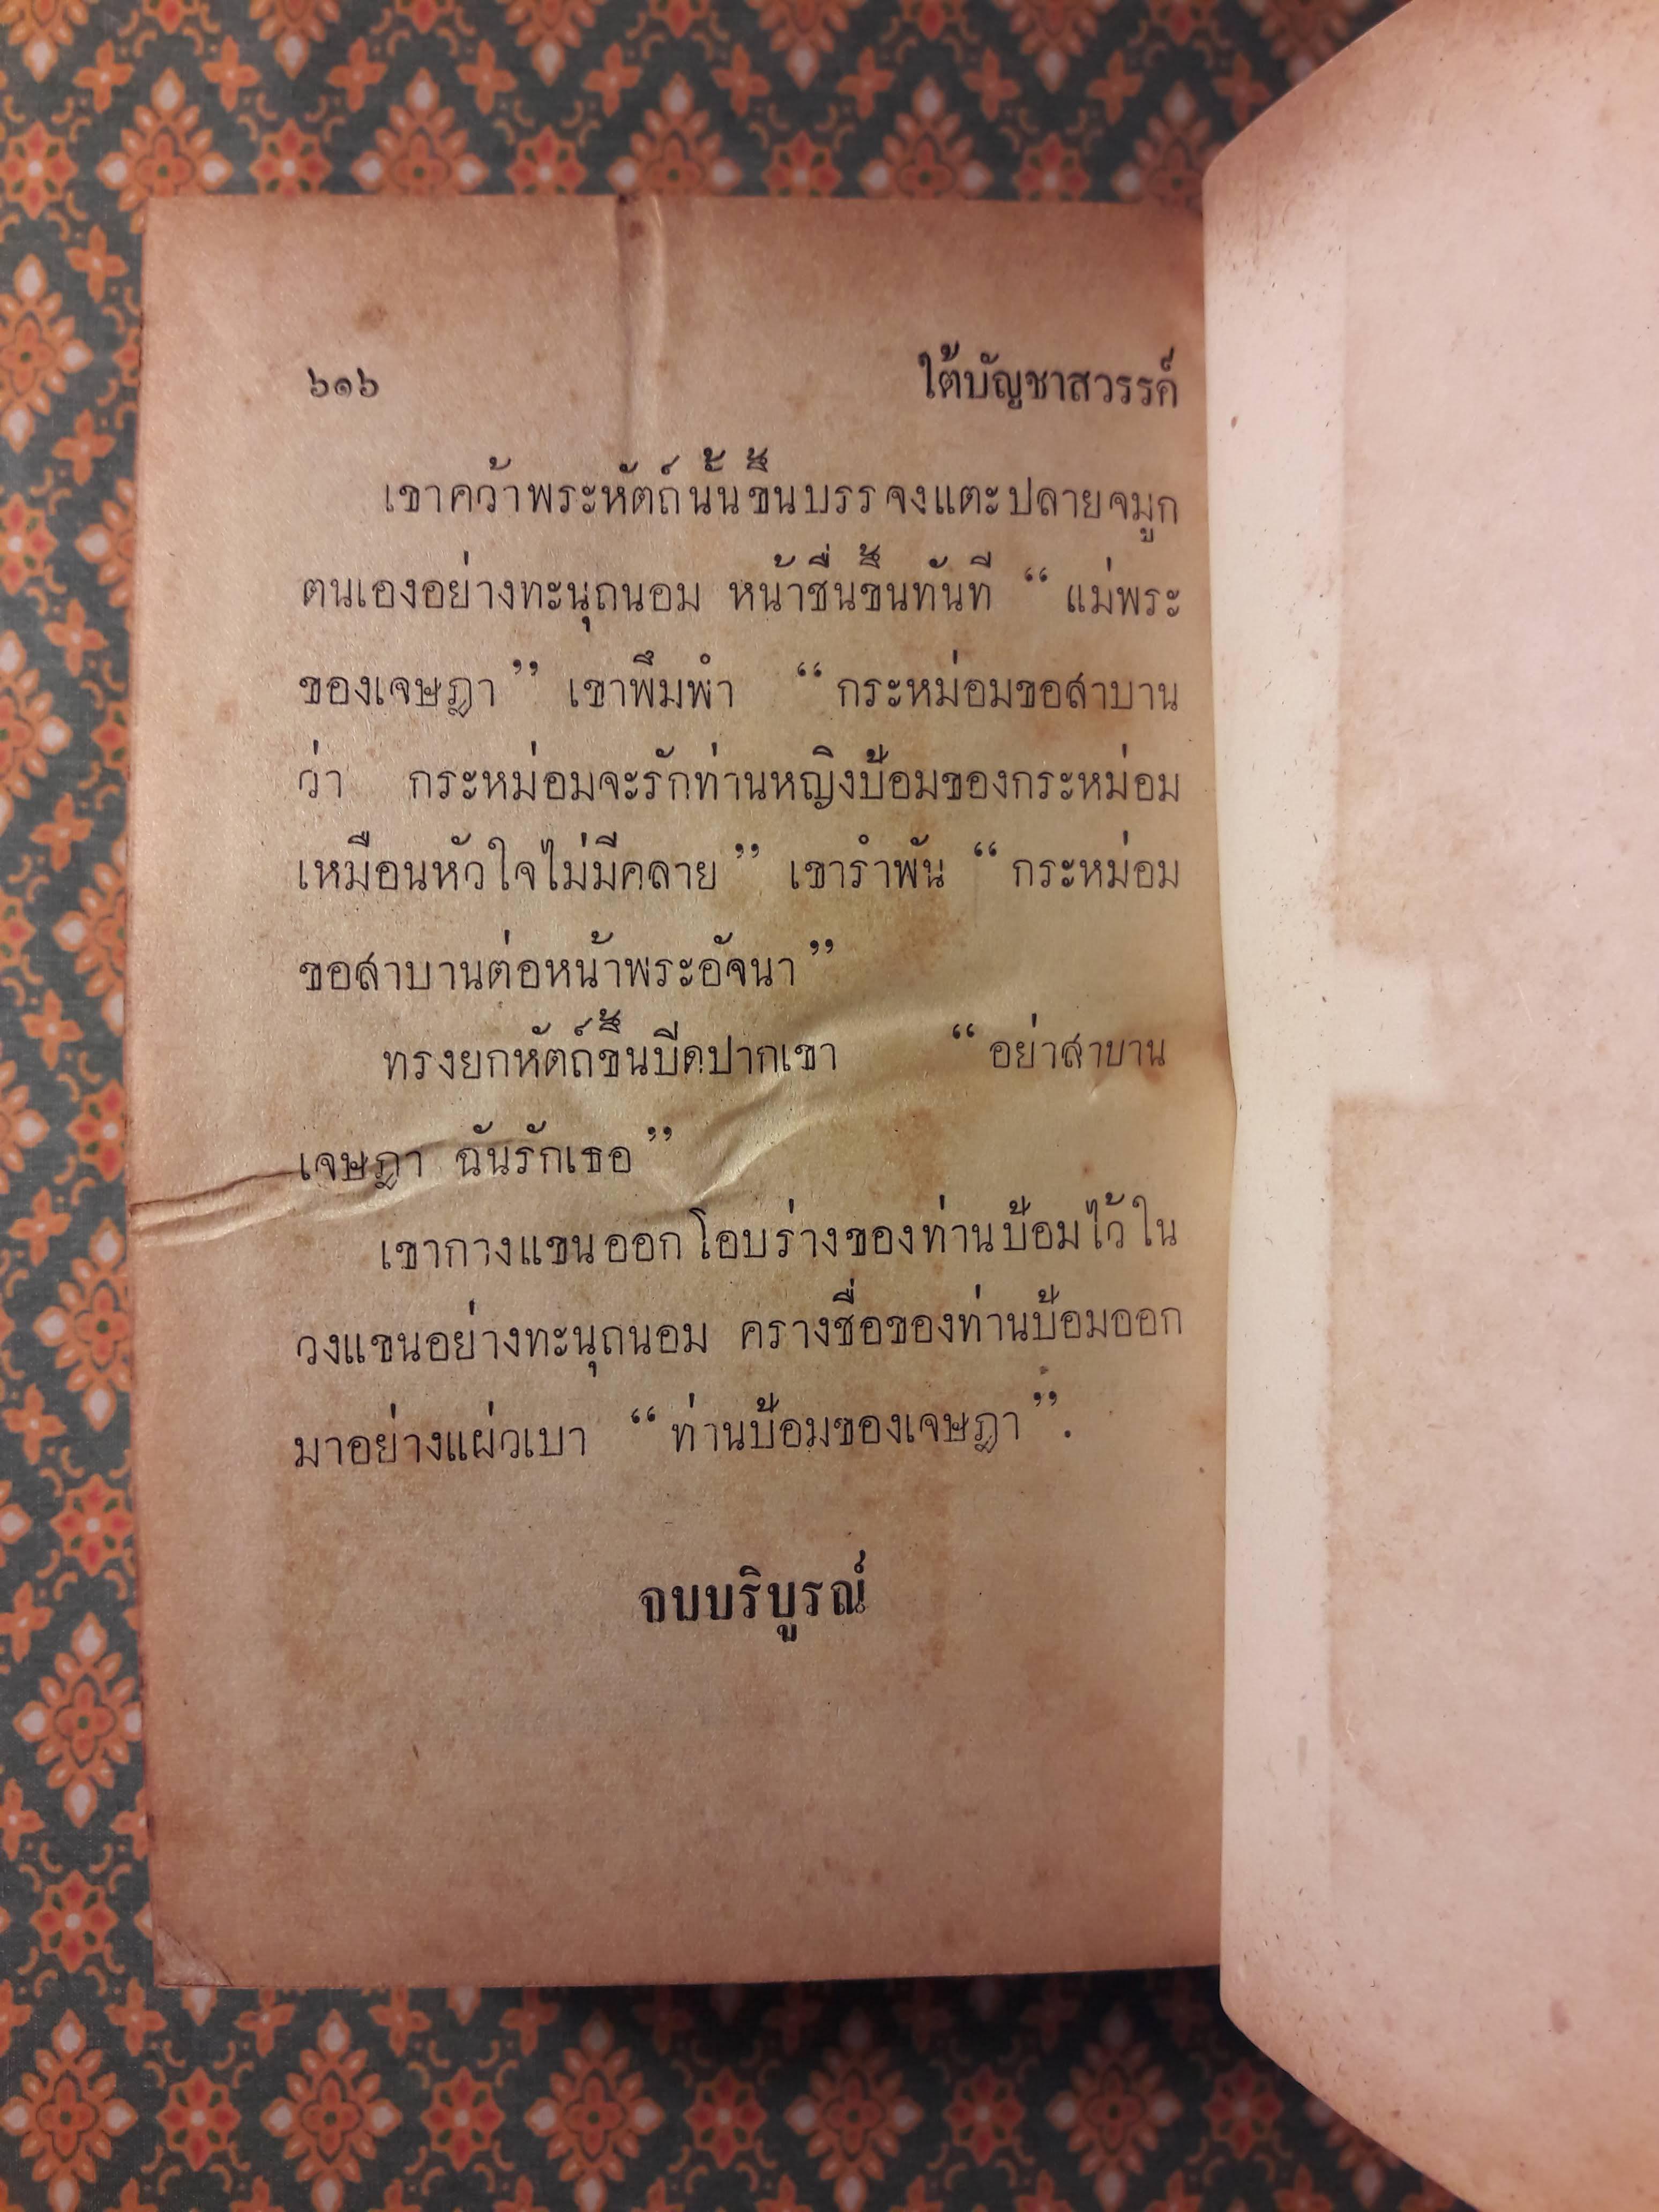 ๖๑๖ ใต้บัญชาสวรรค์
เขาคว้าพระหัตถ์นั้นขึ้นบรรจงแตะปลายจมูก
ตนเองอย่างทะนุถนอม หน้าชื่นขึ้นทันที “ แม่พระ
ของเจษฎา ” เขาพึมพำ “ กระหม่อมขอสาบาน
ว่า กระหม่อมจะรักท่านหญิงป้อมของกระหม่อม
เหมือนหัวใจไม่มีคลาย ” เขารำพัน “ กระหม่อม
ขอสาบานต่อหน้าพระอัจนา ”
ทรงยกหัตถ์ขึ้นปีดปากเขา “ อย่าสาบาน
เจษฎา ฉันรักเธอ ”
เขากางแขนออกโอบร่างของท่านป้อมไว้ใน
วงแขนอย่างทะนุถนอม ครางชื่อของท่านป้อมออก
มาอย่างแผ่วเบา “ ท่านป้อมของเจษฎา ”.
จบบริบูรณ์